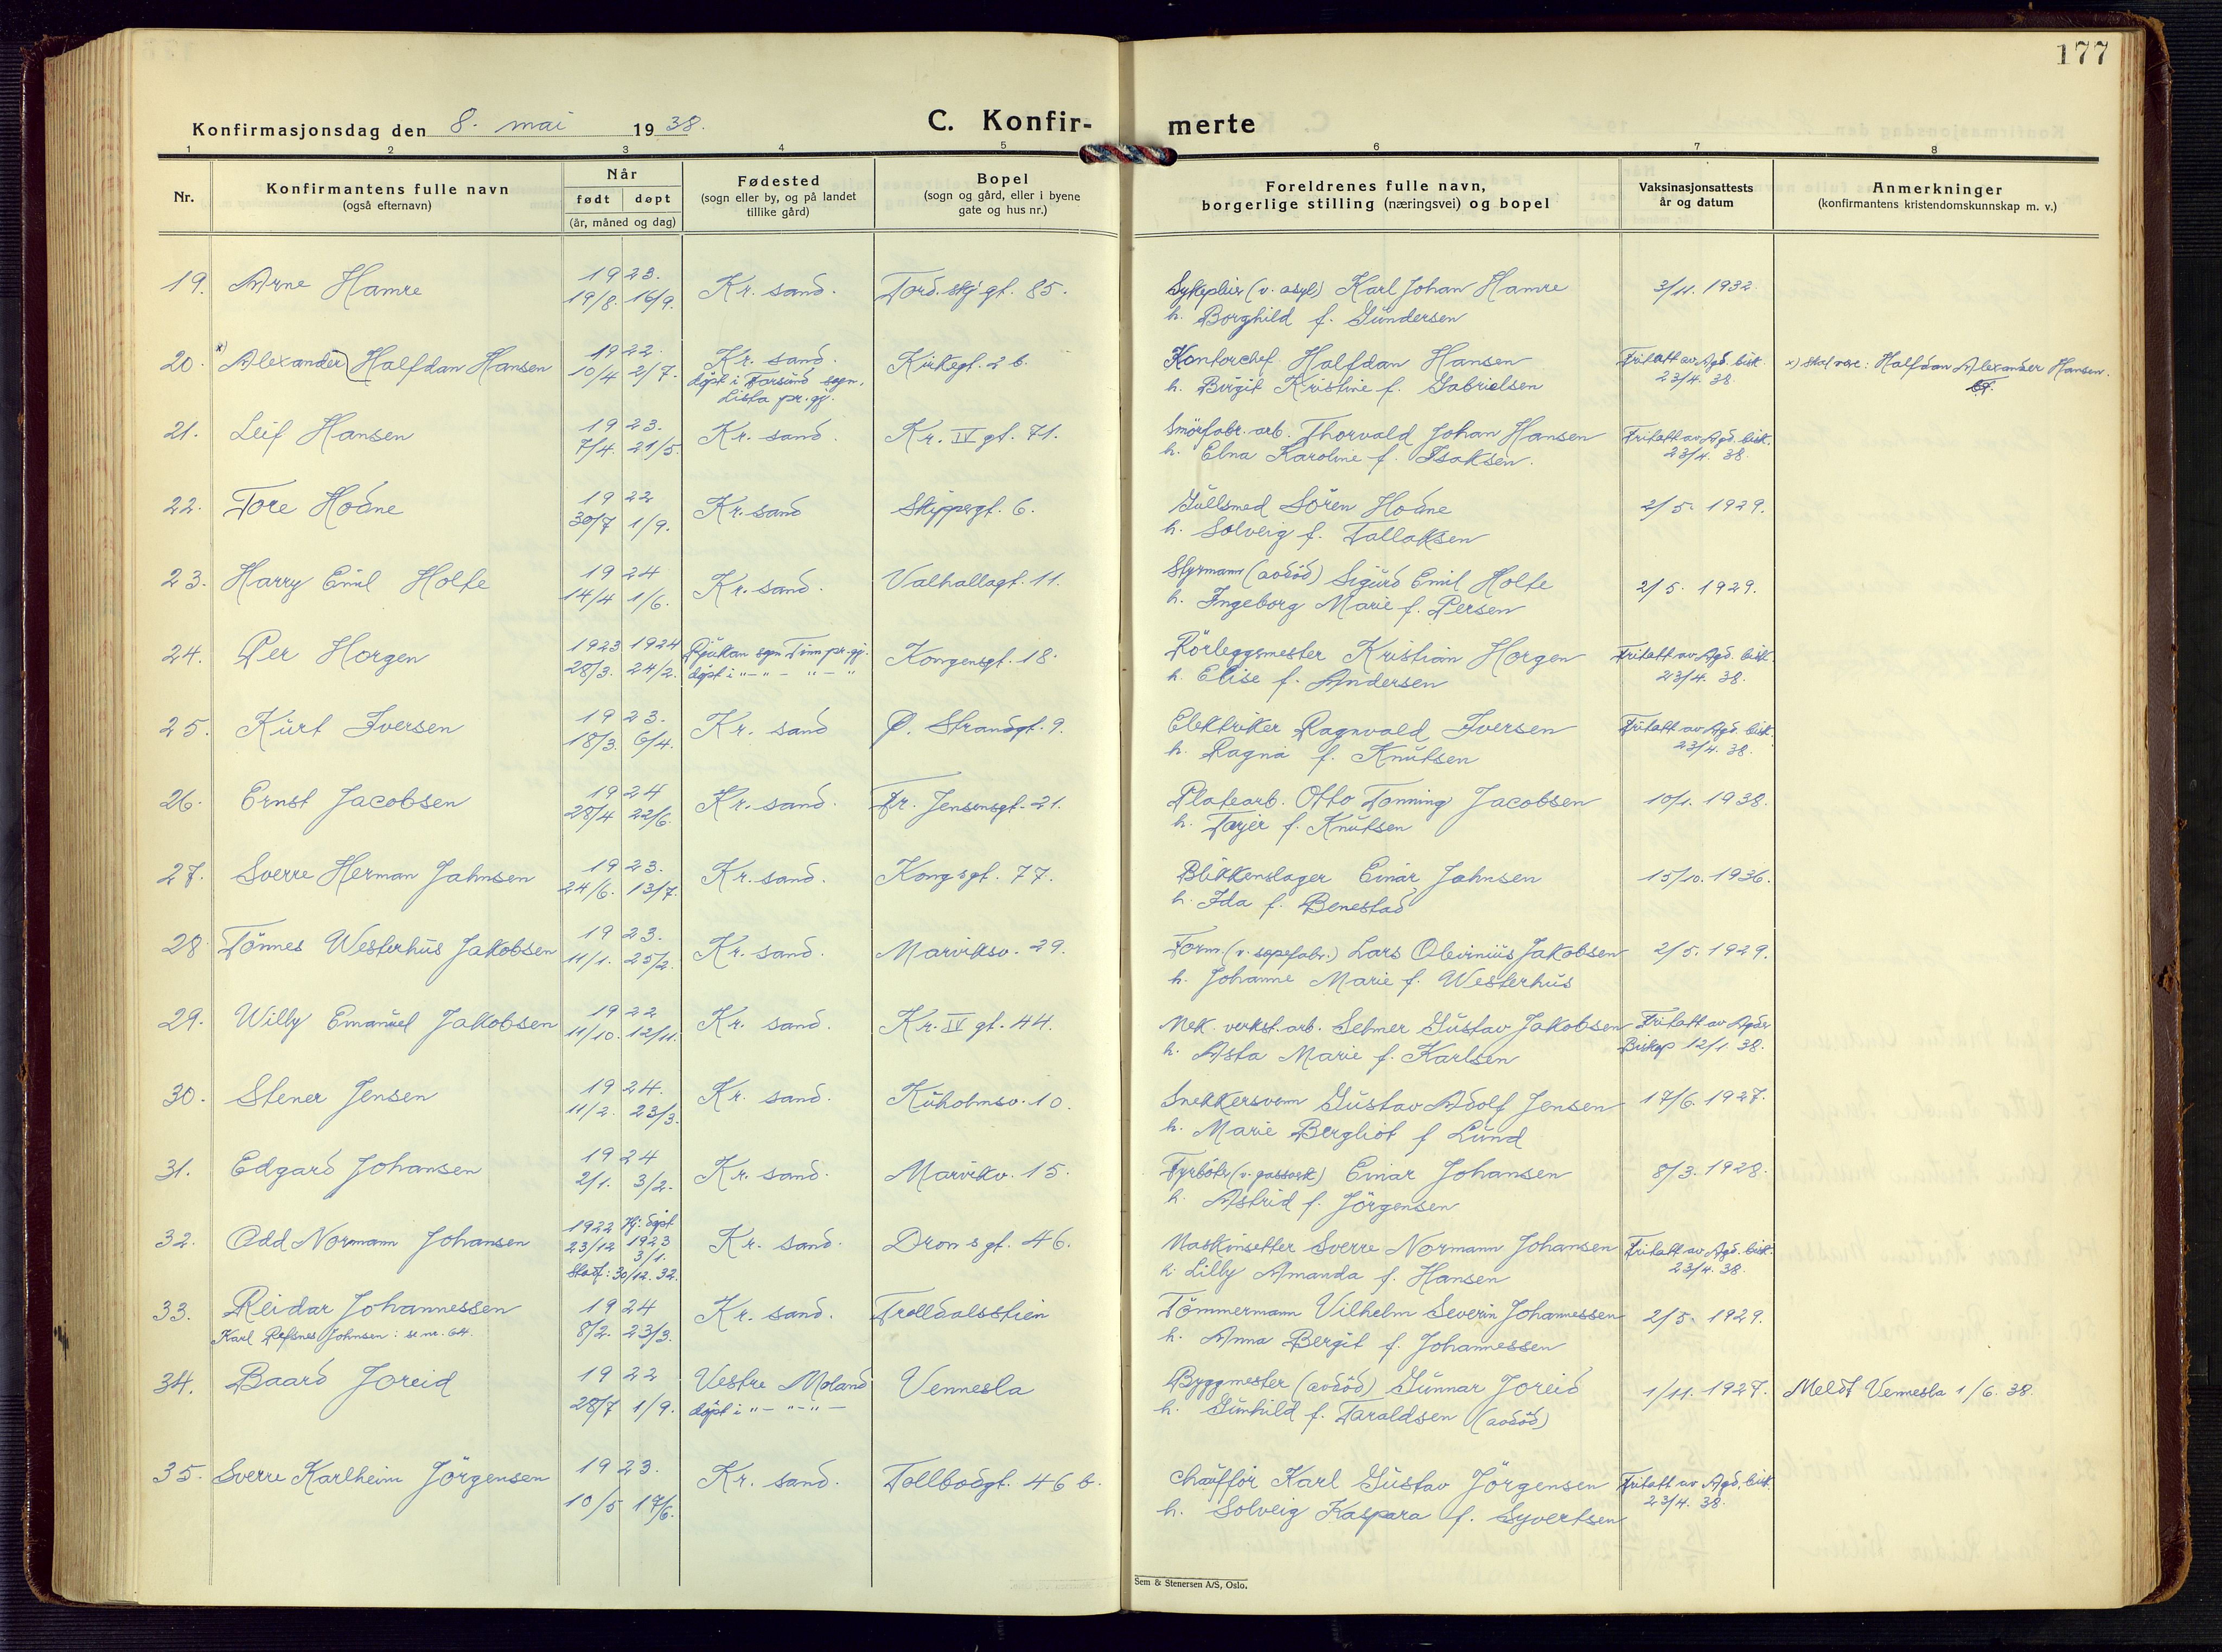 177
Konfirmasjonsdag den 8. mai 1938.
C. Konfir- merte
1 2 3 4 5 6 7 8
Nr.
Konfirmantens fulle navn
(også efternavn)
Når
født døpt
(år, måned og dag)
Fødested
(sogn eller by, og på landet
tillike gård)
Bopel
(sogn og gård, eller i byene
gate og hus nr.)
Foreldrenes fulle navn,
borgerlige stilling (næringsvei) og bopel
Vaksinasjonsattests
år og datum
Anmerkninger
(konfirmantens kristendomskunnskap m. v.)
19. Arne Hamre 1923. 19/8. 16/9. Kr. sand. Tord.skj.gt. 85. Sykepleier (v. asyl) Karl Johan Hamre 3/11. 1932.
h. Borghild f. Gundersen
20. x) Alexander) Halfdan Hansen 1922. 10/4 2/7. Kr. sand. Kirkegt. 26. Kontorchef. Halfdan Hansen Fritatt av Agd. bisk. x) Skal være: Halfdan Alexander Hansen.
døpt i Farsund sogn, Lista pr.gj. h. Birgit Kristine f. Gabrielsen 23/4. 38.
21. Leif Hansen 1923. 7/4. 21/5. Kr. sand. Kr. IV gt. 71. Smörfabr. arb. Thorvald Johan Hansen Fritatt av Agd. bisk.
h. Elna Karoline f. Isaksen. 23/4. 38.
22. Tore Hodne 1922 30/7 1/9. Kr. sand Skippergt. 6. Gullsmed Sören Hodne 2/5. 1929.
h. Solveig f. Tallaksen
23. Harry Emil Holte 1924 14/4 1/6. Kr. sand. Valhallagt. 11. Styrmann (avdöd) Sigurd Emil Holte 2/5. 1929.
h. Ingeborg Marie f. Persen
24. Per Horgen 1923 1924 28/3. 24/2. Rjukan sogn Tinn pr.gj. Kongensgt. 18. Rörleggermester Kristian Horgen Fritatt av Agd. bisk.
døpt i "—"— "—" h. Elise f. Andersen 23/4. 38.
25. Kurt Iversen 1923. 18/3. 6/4. Kr. sand Ø. Strandgt. 9. Elektriker Ragnvald Iversen Fritatt av Agd. bisk.
h. Ragna f. Knutsen 23/4. 38.
26. Ernst Jacobsen 1924 28/4 22/6. Kr. sand. Fr. Jensensgt. 21. Platearb. Otto Tonning Jacobsen 10/1. 1938.
h. Tarjer f. Knutsen
27. Sverre Herman Jahnsen 1923. 24/6. 13/7. Kr. sand. Kongsgt. 77. Blikkenslager Einar Jahnsen 15/10. 1936.
h. Ida f. Benestad
28 Tönnes Westerhus Jakobsen 1923. 11/1. 25/2. Kr. sand. Marviksv. 29. Form. (v. såpefabr.) Lars Olevinius Jakobsen 2/5. 1929.
h. Johanne Marie f. Westerhus
29. Willy Emanuel Jakobsen 1922 11/10. 12/11. Kr. sand. Kr. IV gt. 44. Mek. verkst. arb. Selmer Gustav Jakobsen Fritatt av Agder
h. Asta Marie f. Karlsen Biskop 12/1. 38.
30. Stener Jensen 1924. 11/2. 23/3. Kr. sand. Kuholmsv. 10. Snekkersvenn Gustav Adolf Jensen 17/6. 1927.
h. Marie Bergliot f Lund
31. Edgard Johansen 1924 2/1. 3/2. Kr. sand. Marvikv. 15. Fyrböter (v. gassverk) Einar Johansen 8/3. 1928.
h. Astrid f. Jörgensen
32. Odd Normann Johansen 1922 Hj. døpt 23/12 1923 3/1. Kr. sand. Dronsgt. 46. Maskinsetter Sverre Normann Johansen Fritatt av Agd. bisk.
Stadf: 30/12. 32. h. Lilly Amanda f. Hansen 23/4. 38.
33. Reidar Johannessen 1924 8/2. 23/3. Kr. sand. Trolldalsstien Tömmermann Vilhelm Severin Johannessen 2/5. 1929.
Karl Refsnes Johnsen: se nr. 64. h. Anna Bergit f. Johannessen
34. Baard Joreid 1922 28/7 1/9. Vestre Moland Vennesla Byggmester (avdöd) Gunnar Joreid 1/11. 1927. Meldt Vennesla 1/6. 38.
døpt i "— "—"— h. Gunhild f. Taraldsen (avdöd)
35. Sverre Karlheim Jörgensen 1923. 10/5 17/6. Kr. sand. Tollbodgt. 46 b. Chauffør Karl Gustav Jörgensen Fritatt av Agd. bisk.
h. Solveig Kaspara f. Syvertsen 23/4. 38.
Sem & Stenersen A/S, Oslo.